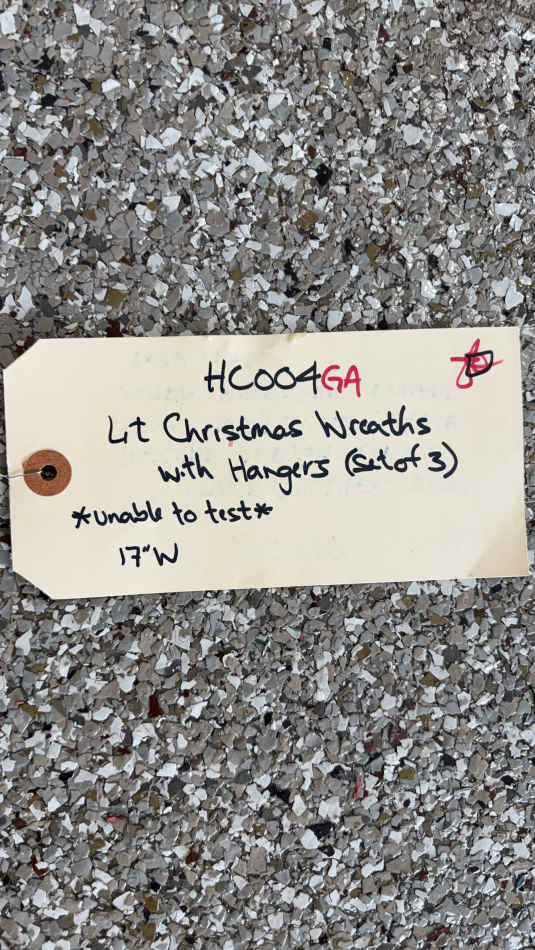 HC004GA
Lit Christmas Wreaths
with Hangers (Set of 3)
*unable to test*
17"W